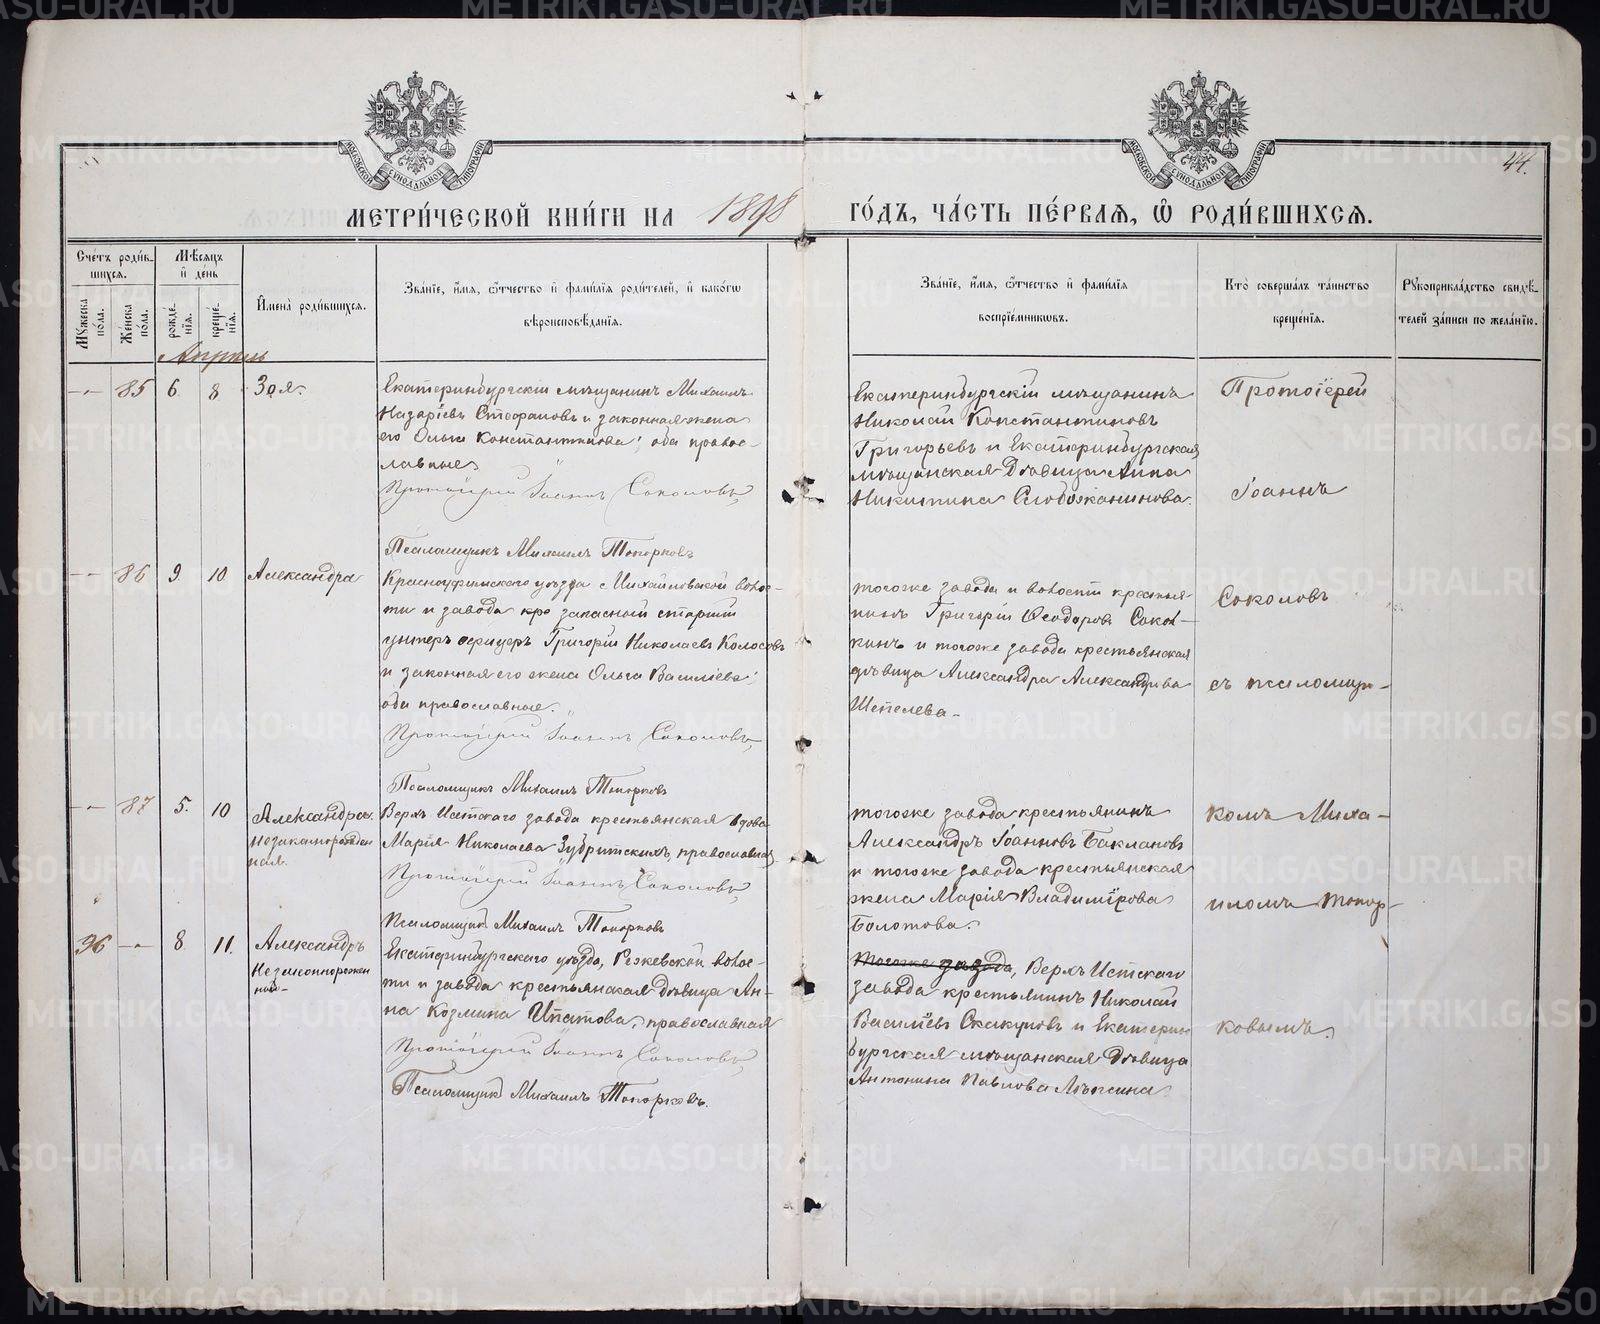 44.
МЕТРИ́ЧЕСКОЙ КНИ́ГИ НА 1898 ГО́ДЪ, ЧА́СТЬ ПЕ́РВАЯ, Ѡ РОДИ́ВШИХСЯ.
Сче́тъ роди́в-
шихся.
Му́жеска
по́ла.
Же́нска
по́ла.
Мѣ́сяцъ
и де́нь
рожде́-
нїя.
креще́-
нїя.
Имена̀ роди́вшихся.
Зва́нїе, и́мя, ѻ́тчество и фами́лїя роди́телей, и како́гѡ
вѣроисповѣ́данїя.
Зва́нїе, и́мя, ѻ́тчество и фами́лїя
воспрїе́мниковъ.
Кто̀ соверша́лъ та́инство
креще́нїя.
Рꙋкоприкла́дство свидѣ́-
телей за́писи по жела́нїю.
Апрѣль
-„- 85 6. 8 Зоя.
Екатеринбургскій мѣщанинъ Михаилъ
Назаріевъ Стефановъ и законная жена
его Ольга Константинова; оба правос-
лавные
Протоіерей Іоаннъ Соколовъ,
Псаломщикъ Михаилъ Топорковъ
Екатеринбургскій мѣщанинъ
Николай Константиновъ
Григорьевъ и Екатеринбургская
мѣщанская дѣвица Анна
Никитина Слобожанинова.
Протоіерей
Іоаннъ
-„- 86 9. 10. Александра
Красноуфимскаго уѣзда с Михайловской волос-
ти и завода запасный старшій
унтеръ офицеръ Григорій Николаевъ Колосовъ
и законная его жена Ольга Васильева;
оба православные.
Протоіерей Іоаннъ Соколовъ,
Псаломщикъ Михаилъ Топорковъ
тогоже завода и волости крестья-
нинъ Григорій Ѳеодоровъ Сокол-
кинъ и тогоже завода крестьянская
дѣвица Александра Александрова
Шепелева.
Соколовъ
съ псаломщи-
-„- 87 5. 10 Александра.
незаконорожден
ная.
Верхъ Исетскаго завода крестьянская вдова
Марія Николаева Зубрицкихъ, православная
Протоіерей Іоаннъ Соколовъ,
Псаломщикъ Михаилъ Топорковъ
тогоже завода крестьянинъ
Александръ Іоанновъ Баклановъ
и тогоже завода крестьянская
жена Марія Владимірова
Болотова.
комъ Миха-
иломъ Топор-
96 -„- 8. 11. Александръ
Незаконнорожен
ный.
Екатеринбургскаго уѣзда, Режевской волос-
ти и завода крестьянская дѣвица Ан-
на Козмина Ипатова, православная
Протоіерей Іоаннъ Соколовъ,
Псаломщикъ Михаилъ Топорковъ.
Тогоже завода, Верхъ Исетскаго
завода крестьянинъ Николай
Васильевъ Скакуновъ и Екатерин
бургская мѣщанская дѣвица
Антонина Павлова
ковымъ.